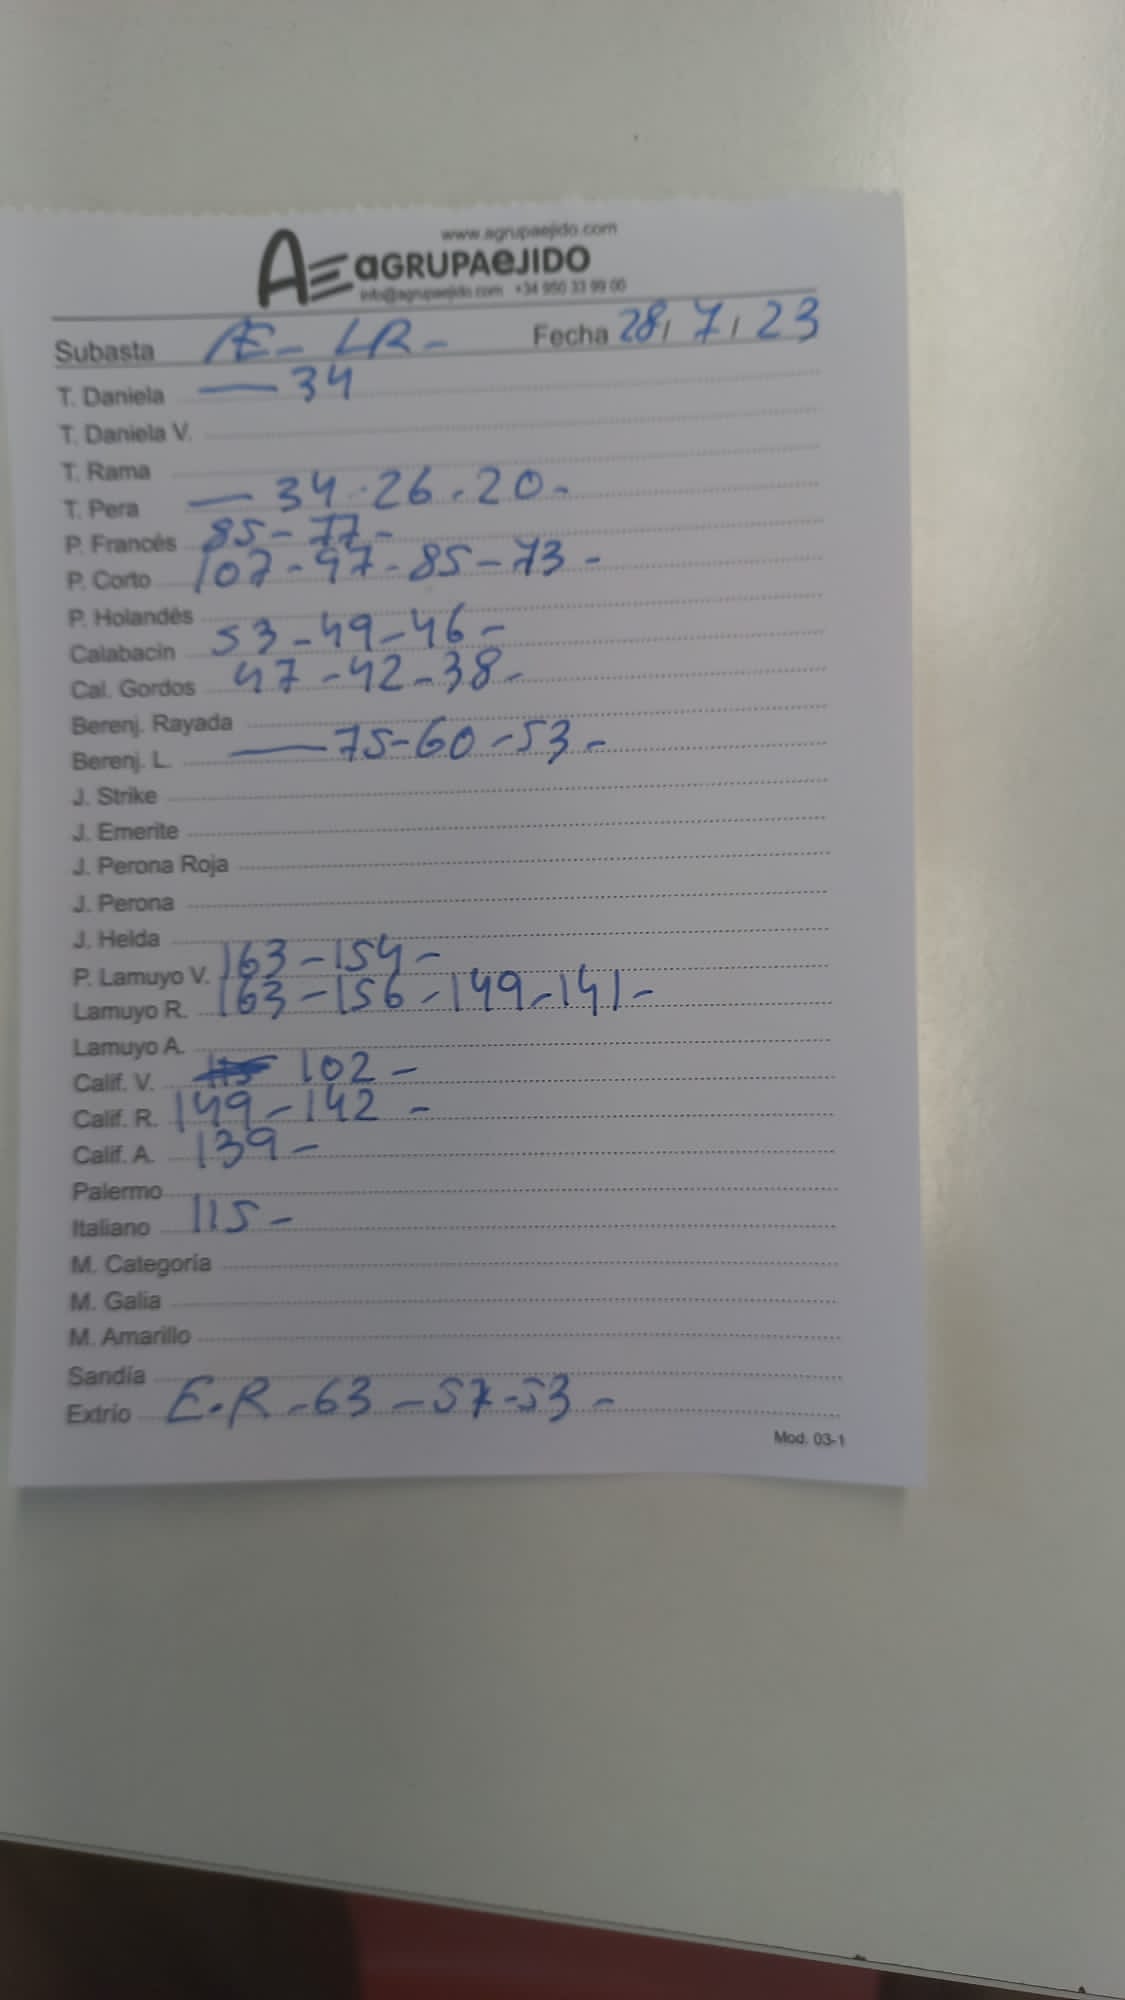 www.agrupaejido.com
AE aGRUPAeJIDO
info@agrupaejido.com +34 950 33 99 00
Subasta AE - LR - Fecha 28 / 7 / 23
T. Daniela — 34
T. Daniela V.
T. Rama
T. Pera — 34 - 26 - 20 -
P. Francés 85 - 77 -
P. Corto 107 - 97 - 85 - 73 -
P. Holandés
Calabacín 53 - 49 - 46 -
Cal. Gordos 47 - 42 - 38 -
Berenj. Rayada
Berenj. L. — 75 - 60 - 53 -
J. Strike
J. Emerite
J. Perona Roja
J. Perona
J. Helda
P. Lamuyo V. 163 - 154 -
Lamuyo R. 163 - 156 - 149 - 141 -
Lamuyo A.
Calif. V. 102 -
Calif. R. 149 - 142 -
Calif. A. 139 -
Palermo
Italiano 115 -
M. Categoría
M. Galia
M. Amarillo
Sandía
Extrio E.R - 63 - 57 - 53 -
Mod. 03-1